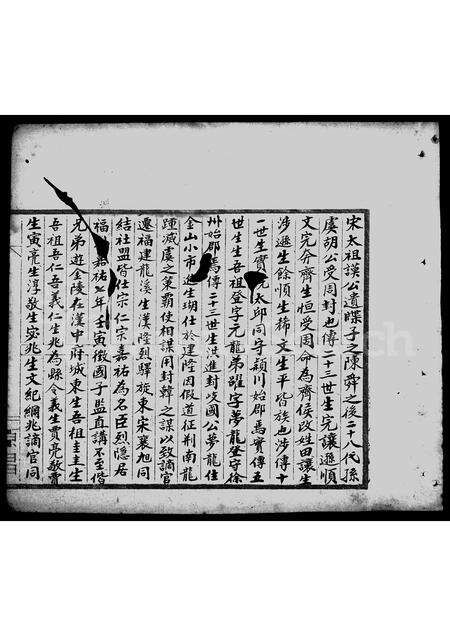 宋太祖謨公遺牒子之陳舜之後二十八代孫
虞胡公受周封也傳二十三世生完讓遜順
文完奔齊生恒受周命為齊侯改姓田讓生
涉遜生餘順生稀文生平皆族也涉傳十
一世生實 太邱同守潁川始郡馬實傳五
世生生吾祖登字元龍弟躍字夢龍登守徐
州始郡馬傳二十三世生洪進封岐國公夢龍住
金山小市進生瑚仕於建隆因假道征荆南龍
踵滅虞之策霸使相謀用封韓之謀以致謫官
遷福建龍溪生漢隆烈驛旋東宋襄旭同
結社盟皆仕宗仁宗嘉祐為名臣烈隱居
福 嘉祐 年壬寅徵國子監直講不至偕
兄弟遊金陵在漢中府城東生吾祖圭圭生
吾祖吾仁吾義仁生兆為縣令義生賈亮敬
生寅亮生淳敬生宓兆生文紀綱兆謫官同